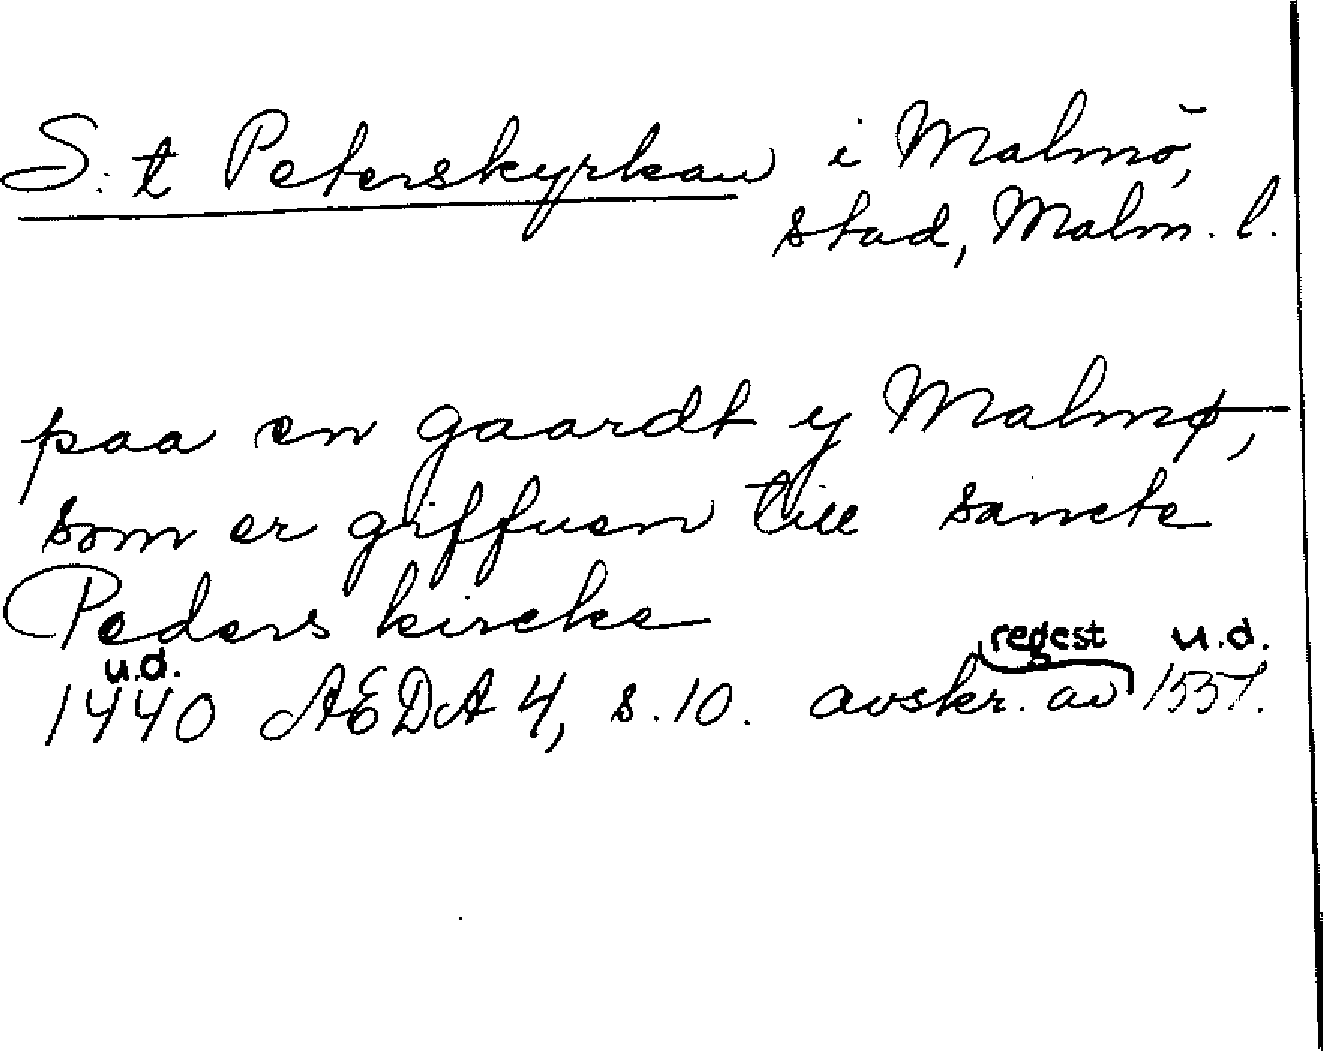 S:t Peterskyrkan i Malmö,
stad, Malm. l.
paa en gaardt y Malmø,
som er giffuen till sancte
Peders kircke
regest u.d.
u.d.
1440 ÆDA 4, s. 10. avskr. av 1537.